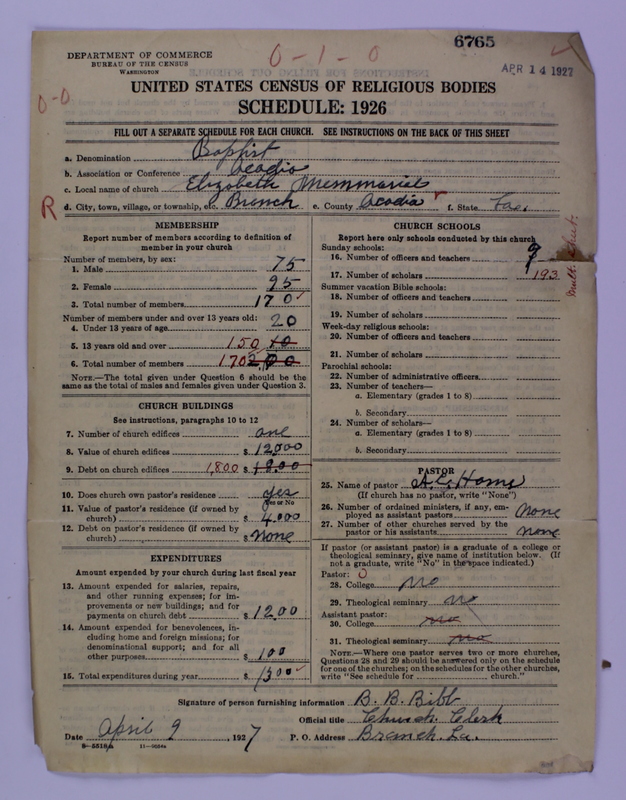 6765
DEPARTMENT OF COMMERCE
BUREAU OF THE CENSUS
WASHINGTON
0-1-0
APR 14 1927
0-0
UNITED STATES CENSUS OF RELIGIOUS BODIES
SCHEDULE: 1926
FILL OUT A SEPARATE SCHEDULE FOR EACH CHURCH. SEE INSTRUCTIONS ON THE BACK OF THIS SHEET
a. Denomination Baptist
b. Association or Conference Acadia
c. Local name of church Elizabeth Memmorial
R d. City, town, village, or township, etc. Branch e. County Acadia f. State La.
MEMBERSHIP
Report number of members according to definition of
member in your church
Number of members, by sex:
1. Male 75
2. Female 95
3. Total number of members 170
Number of members under and over 13 years old:
4. Under 13 years of age 20
5. 13 years old and over 150 10
6. Total number of members 170 200
NOTE.—The total given under Question 6 should be the
same as the total of males and females given under Question 3.
CHURCH BUILDINGS
See instructions, paragraphs 10 to 12
7. Number of church edifices one
8. Value of church edifices $ 12000
9. Debt on church edifices 1,800 $ 18.00
10. Does church own pastor's residence yes
Yes or No
11. Value of pastor's residence (if owned by
church) $ 4,000
12. Debt on pastor's residence (if owned by
church) $ none
EXPENDITURES
Amount expended by your church during last fiscal year
13. Amount expended for salaries, repairs,
and other running expenses; for im-
provements or new buildings; and for
payments on church debt $ 1200
14. Amount expended for benevolences, in-
cluding home and foreign missions; for
denominational support; and for all
other purposes $ 100
15. Total expenditures during year $ 1300
CHURCH SCHOOLS
Report here only schools conducted by this church
Sunday schools:
16. Number of officers and teachers 9
17. Number of scholars 193
Summer vacation Bible schools:
18. Number of officers and teachers
19. Number of scholars
Week-day religious schools:
20. Number of officers and teachers
21. Number of scholars
Parochial schools:
22. Number of administrative officers
23. Number of teachers—
a. Elementary (grades 1 to 8)
b. Secondary
24. Number of scholars—
a. Elementary (grades 1 to 8)
b. Secondary
PASTOR
25. Name of pastor
(If church has no pastor, write "None")
26. Number of ordained ministers, if any, em-
ployed as assistant pastors none
27. Number of other churches served by the
pastor or his assistants none
If pastor (or assistant pastor) is a graduate of a college or
theological seminary, give name of institution below. (If
not a graduate, write "No" in the space indicated.)
Pastor: 0
28. College no
29. Theological seminary no
Assistant pastor:
30. College no
31. Theological seminary no
NOTE.—Where one pastor serves two or more churches,
Questions 28 and 29 should be answered only on the schedule
for one of the churches; on the schedules for the other churches,
write "See schedule for church."
Signature of person furnishing information B. B. Bibb
Official title Church Clerk
Date April 9, 1927 P. O. Address Branch. La.